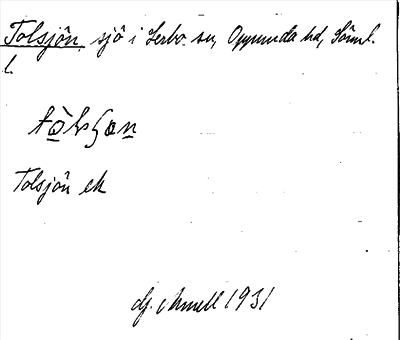 Tolsjön, sjö i Lerbo sn, Oppunda hd, Söml.
l.
tò̲lsɧön̲
Tolsjön ek
Arnell 1931